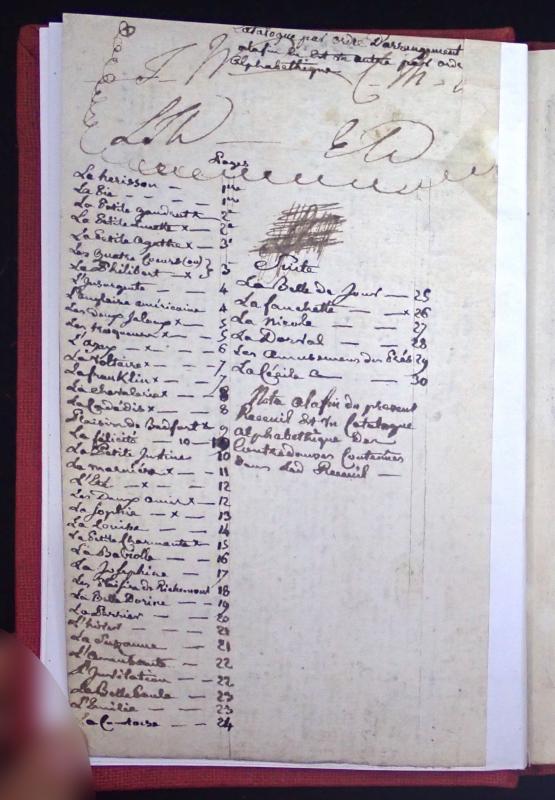 Catalogue par ordre D'arrangement
alafin il est un autre par ordre
Alphabethique
Pages
Le herisson — 1re
La Pie — 1re
La Petite — x — 2e
La Petite Linette x — 2e
La Petite Agathe x — 3e
Les Quatre Coeurs (ou)
La Philibert — x — 3
L'Insurgente — 4
L'anglaise américaine 4
Les deux Jaloux x — 5
Les x — 5
x — 6
La Voltaire x — 7
La franKlin x — 7
La Chevalerie x — 8
x — 8
Plaisirs de x 9
La félicité — 10
La Petite Justine 10
La x — 11
L'Été — x — 12
Les Deux Amis x — 12
La Sophie — x — 13
La Louise — — 14
La Petite Charmante x — 15
La — — 16
La Josephine — 17
Les Plaisirs de Richemont 18
La Belle Dorine — 19
La — — 20
L'hiver — — 21
La Suzanne — — 21
— — 22
— — 22
La Belle Paule — — 23
L'Emilie — — 23
La — — 24
Suite
La Belle de Jour — 25
La fanchette — x 26
La Nicole — 27
La Dorval — 28
Les Amusemens des 29
La Cécile — 30
Nota alafin du present
Receuil est un Catalogue
Alphabethique Des
Contredanses Contenues
Dans led Receuil —